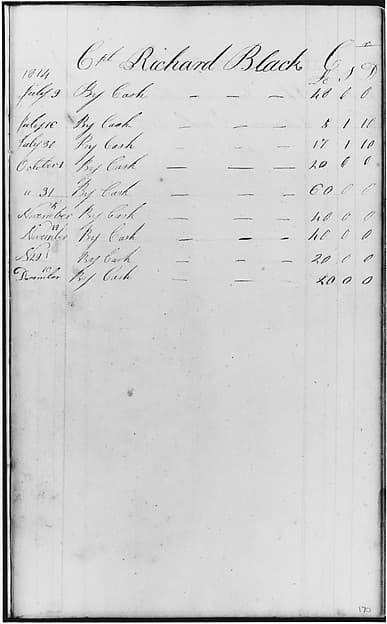 Cpt Richard Black Cr
1814 £ S D
July 9 By Cash — — — 40 0 0
July 16 By Cash — — — 8 1 10
July 30 By Cash — — — 17 1 10
October 1 By Cash — — — 20 0 0
" 31 By Cash — — — 60 0 0
November By Cash — — — 40 0 0
November By Cash — — — 40 0 0
By Cash — — — 20 0 0
December By Cash — — — 20 0 0
170